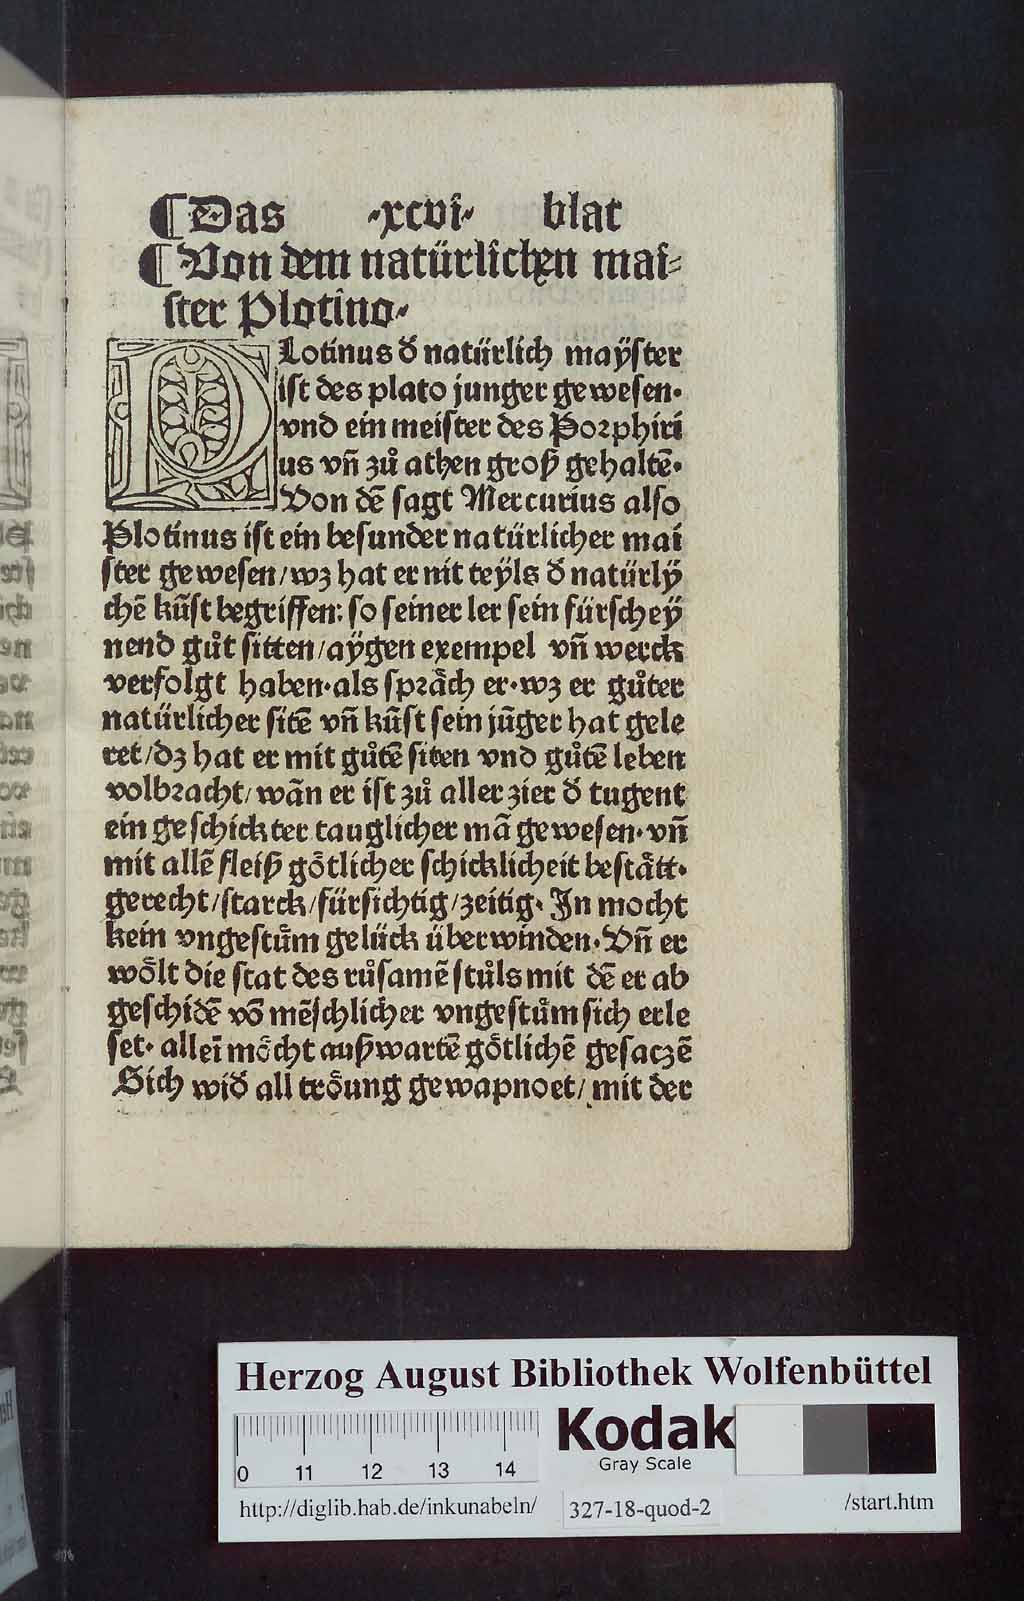 ¶ Das ·xcvi· blat
¶ Von dem natürlichen mai⸗
ster Plotino·
PLotinus đ natürlich maÿster
ist des plato junger gewesen·
vnd ein meister des Porphiri
us vñ zů athen groß gehaltē·
Von dē sagt Mercurius also
Plotinus ist ein besunder natürlicher mai
ster gewesen/wz hat er nit teÿls đ natürlÿ
chē kūst begriffen: so seiner ler sein fürscheÿ
nend gůt sitten/aÿgen exempel vñ werck
verfolgt haben·als sprǎch er·wz er gůter
natürlicher sitē vñ kūst sein jūger hat gele
ret/dz hat er mit gůtē siten vnd gůtē leben
volbracht/wān er ist zů aller zier đ tugent
ein geschickter tauglicher mā gewesen·vñ
mit allē fleiß gȯtlicher schicklicheit bestått·
gerecht/starck/fürsichtig/zeitig· In mocht
kein vngestům gelück überwinden· Vñ er
wȯlt die stat des růsamē stůls mit dē er ab
geschidē vō mēschlicher vngestům sich erle
set· alleī mȯcht außwartē gȯtlichē gesaczē
Sich wiđ all trȯung gewapnoet/mit der
Herzog August Bibliothek Wolfenbüttel
0 11 12 13 14
Kodak
Gray Scale
http://diglib.hab.de/inkunabeln/ 327-18-quod-2 /start.htm